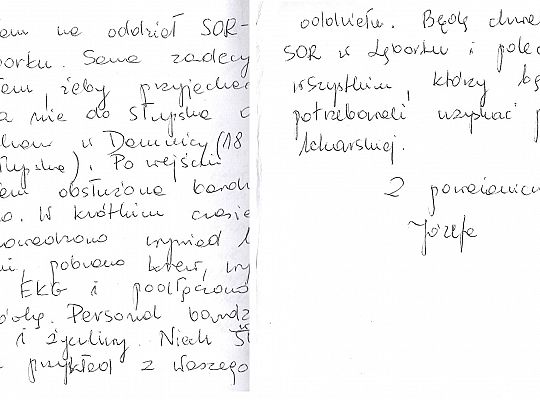 em na oddział SOR-
borku. Sama zadecy
łam, żeby przyjechać
a nie do Słupska
w Damnicy (18
łupska). Po wejściu
łam obsłużona bard
o. W krótkim czasie
owadzono wywiad l
mi, pobrano krew, wy
EKG i podłączono
ówkę. Personel bardz
i życzliwy. Niech SŁ
przykład z Waszego
oddziału. Będę chwa
SOR w Lęborku i polec
wszystkim, którzy bę
potrzebowali uzyskać p
lekarskiej.
Z poważaniem
Józefa